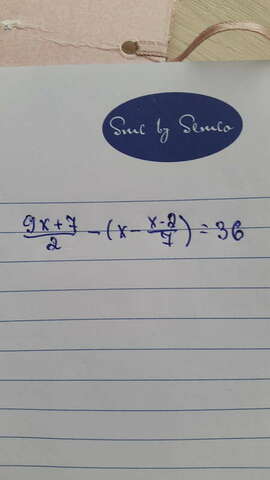 Sml by Semco
(9x+7)/2 - (x - (x-2)/7) = 36